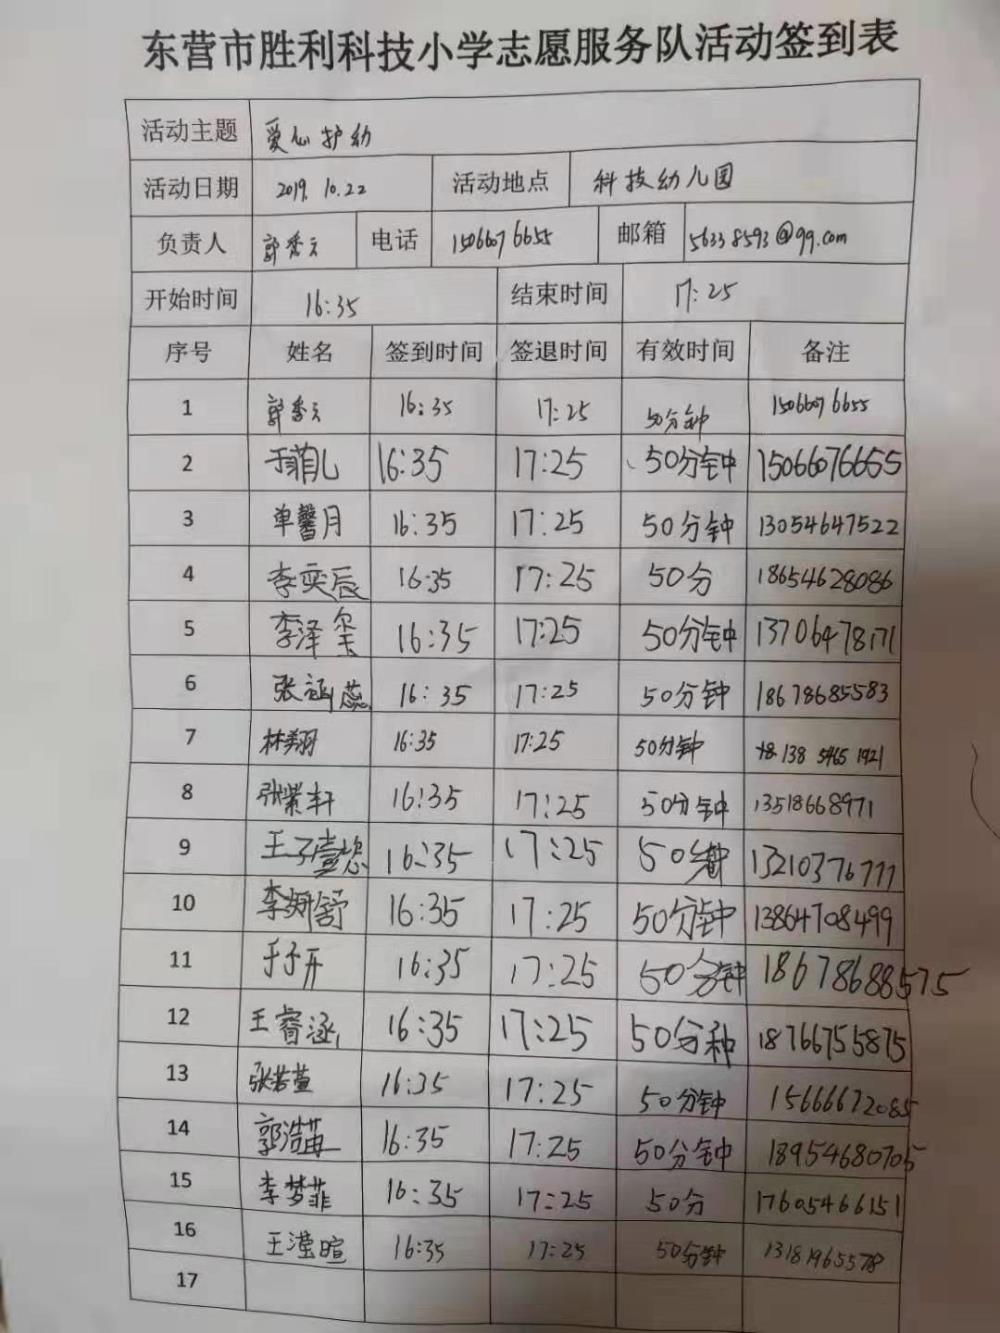 东营市胜利科技小学志愿服务队活动签到表
活动主题 爱心护幼
活动日期 2019.10.22 活动地点 科技幼儿园
负责人 郭秀云 电话 15066076655 邮箱 56338593@qq.com
开始时间 16:35 结束时间 17:25
序号 姓名 签到时间 签退时间 有效时间 备注
1 郭秀云 16:35 17:25 50分钟 15066076655
2 16:35 17:25 50分钟 15066076655
3 单馨月 16:35 17:25 50分钟 13054647522
4 李奕辰 16:35 17:25 50分 18654628086
5 李泽玺 16:35 17:25 50分钟 13706478171
6 张涵蕊 16:35 17:25 50分钟 18678685583
7 林翔 16:35 17:25 50分钟 138 5465 1921
8 张紫轩 16:35 17:25 50分钟 13518668971
9 16:35 17:25 50分钟 13210376777
10 16:35 17:25 50分钟 13864708499
11 于子开 16:35 17:25 50分钟 18678688575
12 王睿涵 16:35 17:25 50分种 18766755875
13 张若萱 16:35 17:25 50分钟 15666672085
14 16:35 17:25 50分钟 18954680705
15 李梦菲 16:35 17:25 50分 17605466151
16 王滢暄 16:35 17:25 50分钟 13181965578
17